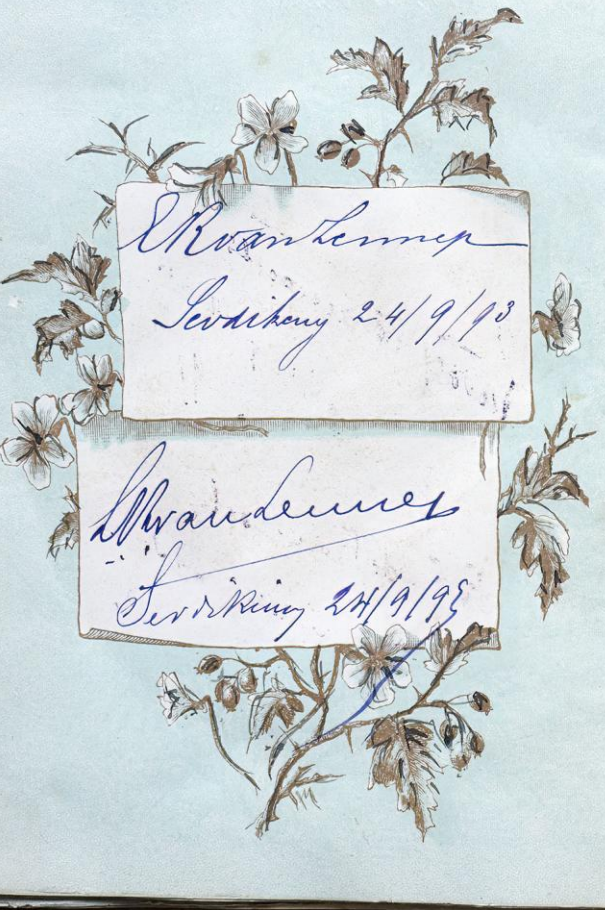 E R van Lennep
Sevdikeuy 24/9/93
van Lennep
Sevdikeuy 24/9/93